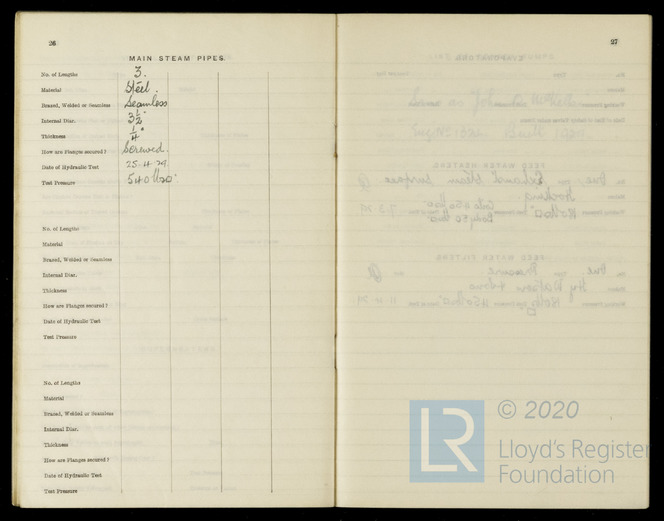 26
MAIN STEAM PIPES.
No. of Lengths 3.
Material Steel.
Brazed, Welded or Seamless Seamless
Internal Diar. 3½"
Thickness ¼"
How are Flanges secured? Screwed.
Date of Hydraulic Test 25.4.29
Test Pressure 540 lbs
No. of Lengths
Material
Brazed, Welded or Seamless
Internal Diar.
Thickness
How are Flanges secured?
Date of Hydraulic Test
Test Pressure
No. of Lengths
Material
Brazed, Welded or Seamless
Internal Diar.
Thickness
How are Flanges secured?
Date of Hydraulic Test
Test Pressure
27
LR © 2020
Lloyd's Register
Foundation